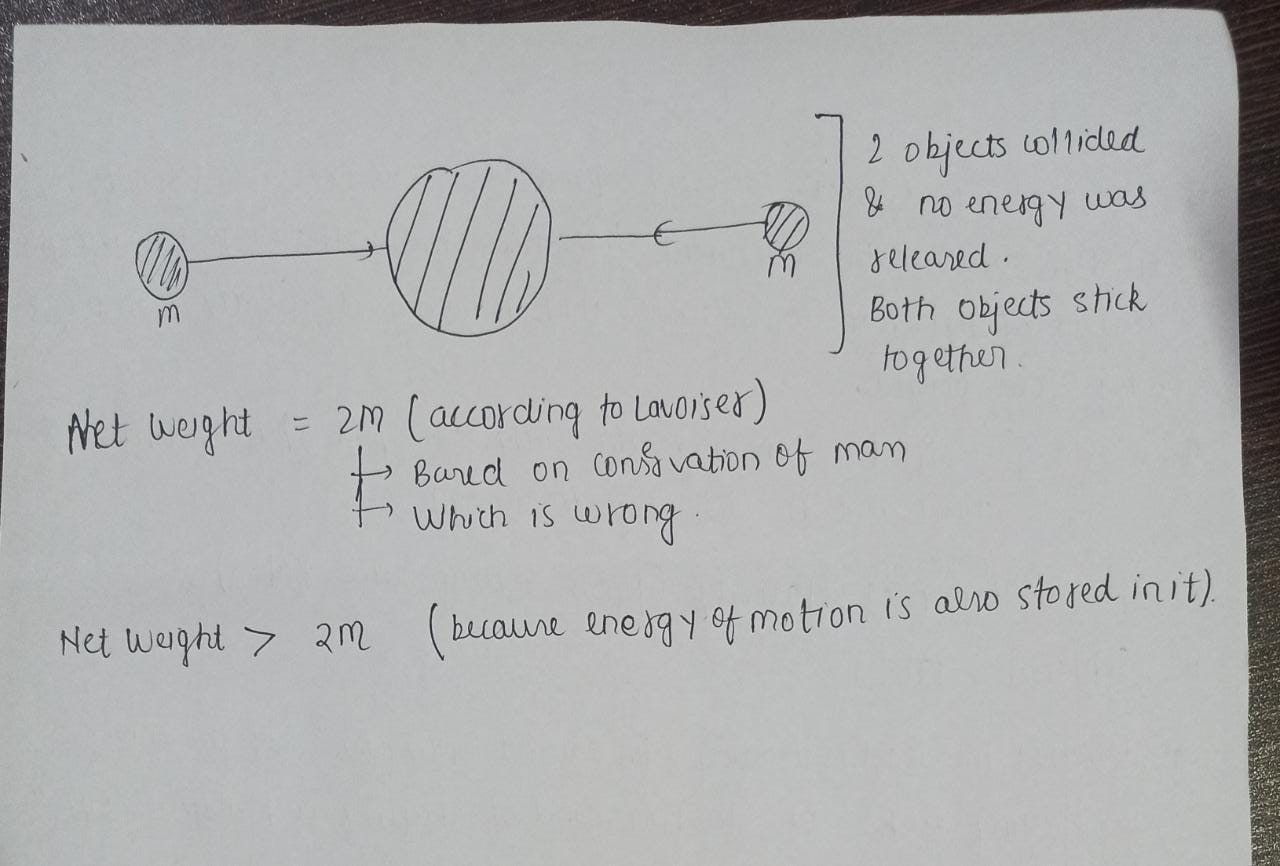 m
m
2 objects collided
& no energy was
released.
Both objects stick
together.
Net weight = 2m (according to Lavoiser)
→ Based on conservation of mass
→ Which is wrong.
Net weight > 2m (because energy of motion is also stored in it).